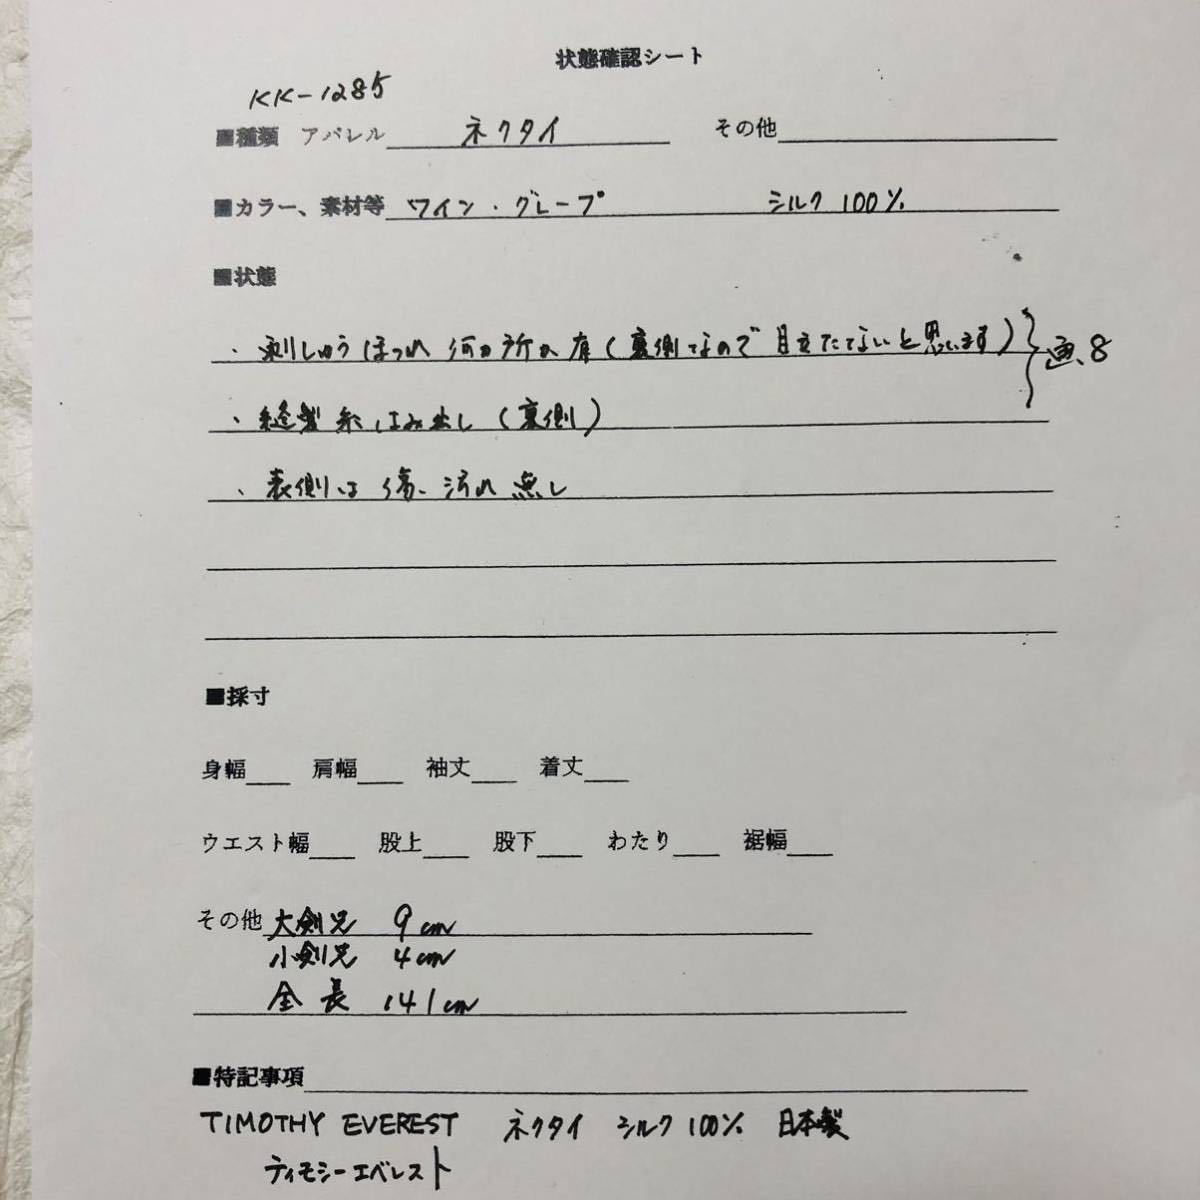 状態確認シート
KK-1285
■種類 アパレル ネクタイ その他
■カラー、素材等 ワイン・グレープ シルク100%
■状態
・刺しゅうほつれ何か所か有(裏側なので目立たないと思います) 画、8
・縫製糸はみ出し(裏側)
・表側は傷、汚れ無し
■採寸
身幅 肩幅 袖丈 着丈
ウエスト幅 股上 股下 わたり 裾幅
その他 大剣 9cm
小剣 4cm
全長 141cm
■特記事項
TIMOTHY EVEREST ネクタイ シルク100% 日本製
ティモシーエベレスト